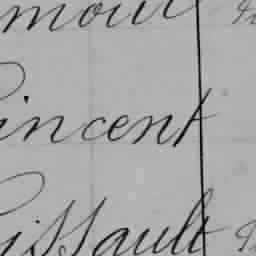 mour
incent
issault